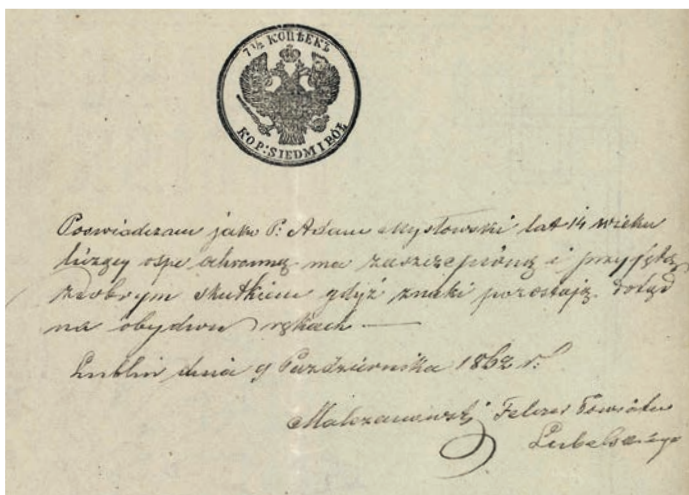 7½ КОПѢЕКЪ
KOP: SIEDM I PÓŁ
Poswiadczam jako P. Adam Mysłowski lat 14 wieku
liczący ospę ochronną ma zaszczepioną i przyjętą
z dobrym skutkiem gdyż znaki pozostają dotąd
na obydwu rękach —
Lublin dnia 9 Października 1862 r.
Felczer Powiatu
Lubelskiego